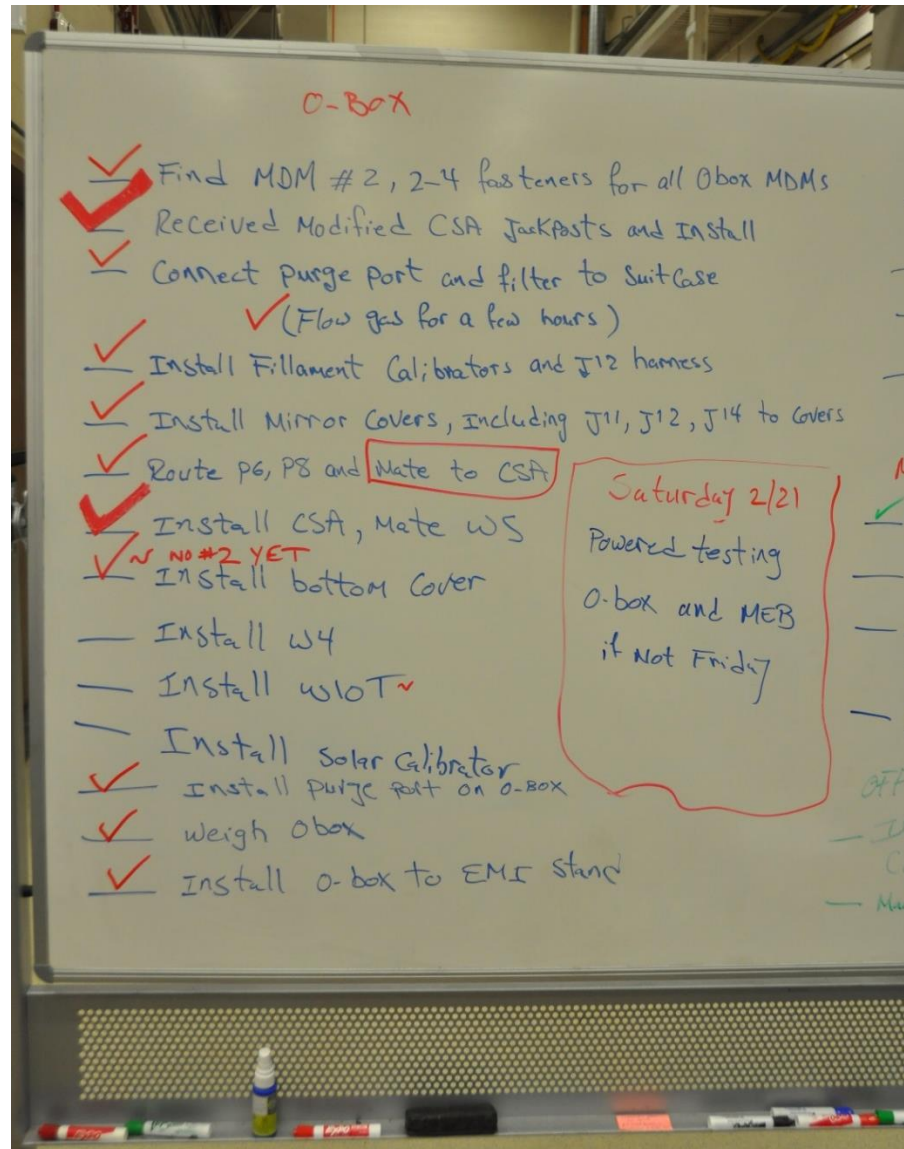 O-BOX
Find MDM #2, 2-4 fasteners for all Obox MDMs
Received Modified CSA Jackposts and Install
Connect purge port and filter to SuitCase
(Flow gas for a few hours)
Install Fillament Calibrators and J12 harness
Install Mirror Covers, Including J11, J12, J14 to Covers
Route P6, P8 and Mate to CSA
Install CSA, Mate W5
~ NO #2 YET
Install bottom Cover
Install W4
Install W10T
Install Solar Calibrator
Install purge port on O-BOX
Weigh Obox
Install O-box to EMI Stand
Saturday 2/21
Powered testing
O-box and MEB
if Not Friday
OFF
EXPO
EXPO